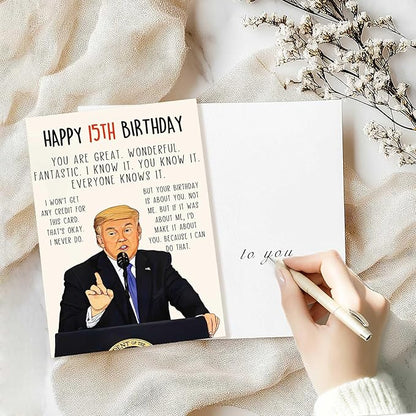 HAPPY 15TH BIRTHDAY
YOU ARE GREAT. WONDERFUL.
FANTASTIC. I KNOW IT. YOU KNOW IT.
EVERYONE KNOWS IT.
I WON'T GET
ANY CREDIT FOR
THIS CARD.
THAT'S OKAY.
I NEVER DO.
BUT YOUR BIRTHDAY
IS ABOUT YOU. NOT
ME. BUT IF IT WAS
ABOUT ME, I'D
MAKE IT ABOUT
YOU. BECAUSE I CAN
DO THAT.
to you